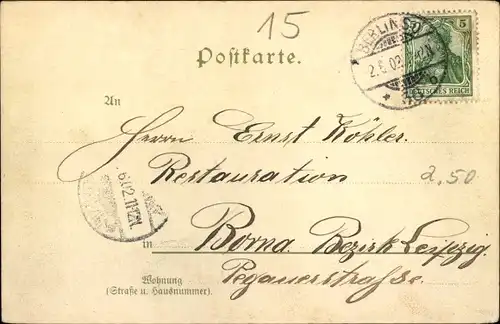 15
Postkarte.
BERLIN SO
2.6.02. 11-12N.
5
DEUTSCHES REICH
An
Herrn Ernst Köhler.
Restauration
2,50
6.02. 11-12N.
in Borna. Bezirk Leipzig.
Pegauerstraße.
Wohnung
(Straße u. Hausnummer).